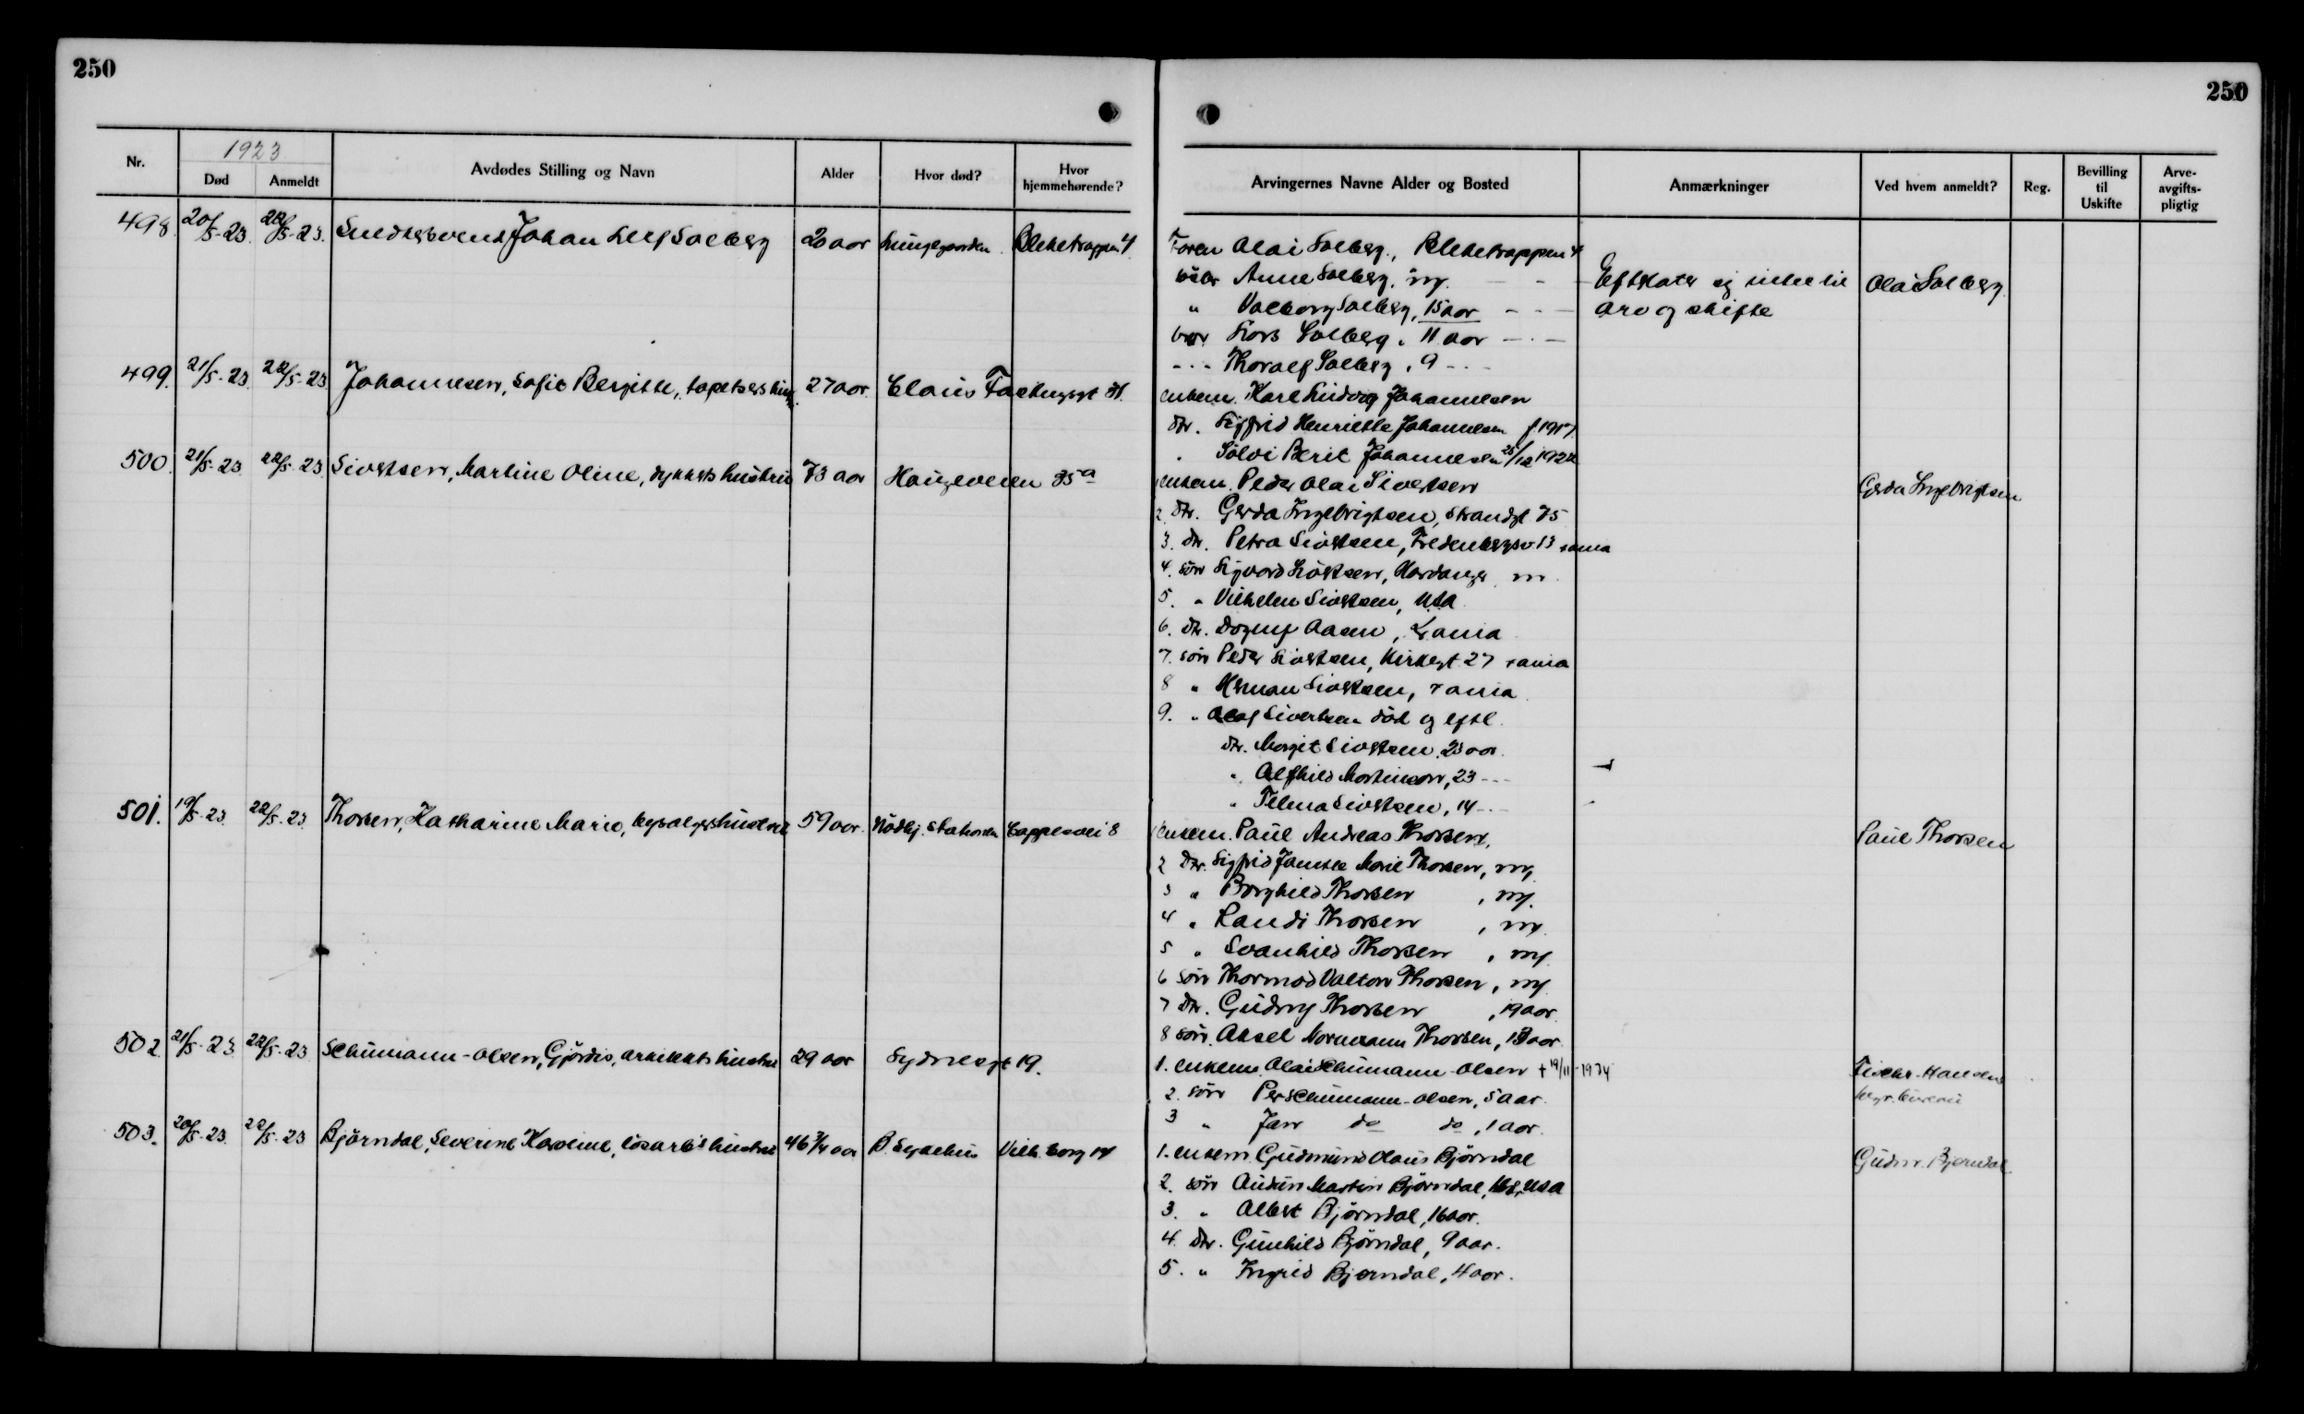 250
250
Nr.
1923
Død
Anmeldt
Avdødes Stilling og Navn
Alder
Hvor død?
Hvor hjemmehørende?
Arvingernes Navne Alder og Bosted
Anmærkninger
Ved hvem anmeldt?
Reg.
Bevilling til Uskifte
Arve-avgifts-pligtig
498. 20/5-23. 22/5-23. Johan Leif Solberg 20 aar Lungegaarden Bleketrappen 4
Faren Olai Solberg, Bleketrappen 4
søster Anne Solberg, my. — - —
" Valborg Solberg, 15 aar — - —
bror Lars Solberg, 11 aar — - —
- . - Thoralf Solberg, 9 - . -
Efterlater sig intet til
arv og skifte
Olai Solberg
499. 21/5-23. 22/5-23 Johannesen, Sofie Bergitte, 27 aar. Claus
enkem. Karl Ludvig Johannesen
dtr. Sigfrid Henriette Johannesen f. 1917.
" Sølvi Berit Johannesen 25/12 1922
500. 21/5-23 22/5-23 Sivertsen, Martine Oline, hustru 73 aar Haugeveien 35 a
enkem. Peder Olai Sivertsen
2. dtr. Gerda Ingebrigtsen, Strandgt 75
3. dtr. Petra Sivertsen, 13
4. søn Sigvard Sivertsen, Hardanger m
5. " Vilhelm Sivertsen, USA
6. dtr. Dagny Aasen,
7. søn Peder Sivertsen, Kirkegt. 27
8 " Herman Sivertsen,
9. " Olaf Sivertsen død og eftl.
dtr. Margit Sivertsen, 23 aar.
" Alfhild Martinson, 23 - . -
" Telma Sivertsen, 14 - . -
Gerda Ingebrigtsen
501. 19/5-23. 22/5-23. Thorsen, Katharine Marie, 59 aar. Nødhj. stationen Cappesvei 8
enkem. Paul Andreas Thorsen,
2 dtr. Sigfrid Marie Thorsen, my.
3 " Borghild Thorsen, my.
4 " Randi Thorsen, my.
5 " Svanhild Thorsen, my.
6 søn Thormod Valton Thorsen, my.
7 dtr. Gudny Thorsen, 19 aar.
8 søn. Aksel Normann Thorsen, aar.
Paul Thorsen
502. 21/5-23. 22/5-23 Schumann-Olsen, Gjørdis, arkitekts hustru 29 aar Sydnesgt 19.
1. enkem. Olai Schumann-Olsen + 19/11-1974
2. søn Per Schumann-Olsen, 5 aar.
3 " Jan do do, 1 aar.
Hansens
503. 20/5-23. 22/5-23 Bjørndal, Severine Karoline, løsarb's hustru 46 3/4 aar B. Sykehus
1. enkem Gudmund Olaus Bjørndal
2. søn Audun Martin Bjørndal, USA
3. " Albert Bjørndal, 16 aar.
4. dtr. Gunhild Bjørndal, 9 aar.
5. " Ingrid Bjørndal, 4 aar.
Gudm. Bjørndal